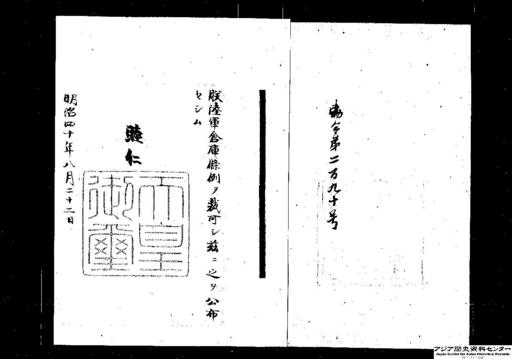 勅令第二百九十号
朕陸軍倉庫條例ヲ裁可シ茲ニ之ヲ公布
セシム
睦仁
天皇
御璽
明治四十年八月二十二日
アジア歴史資料センター
Japan Center for Asian Historical Records